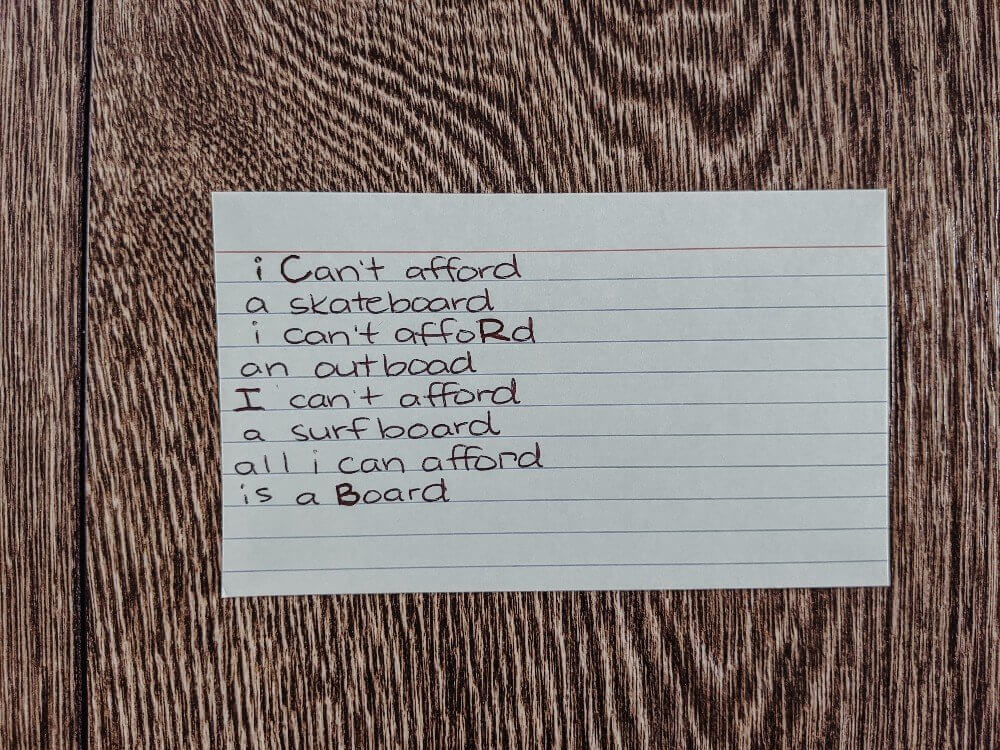 i Can't afford
a skateboard
i can't affoRd
an outboad
I can't afford
a surfboard
all i can afford
is a Board